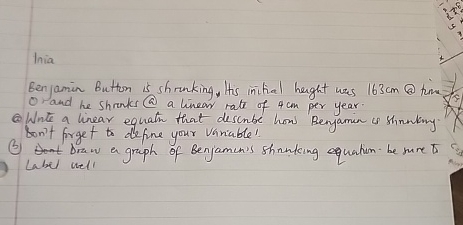 Inia
Benjamin Button is shrinking. His initial height was 163cm @ time
0 and he shrinks @ a linear rate of 4cm per year.
@ Write a linear equatn that describe how Benjamin is shrinking.
Don't forget to define your variable!
③ Draw a graph of Benjamin's shrinking equation. be sure to
Label well!